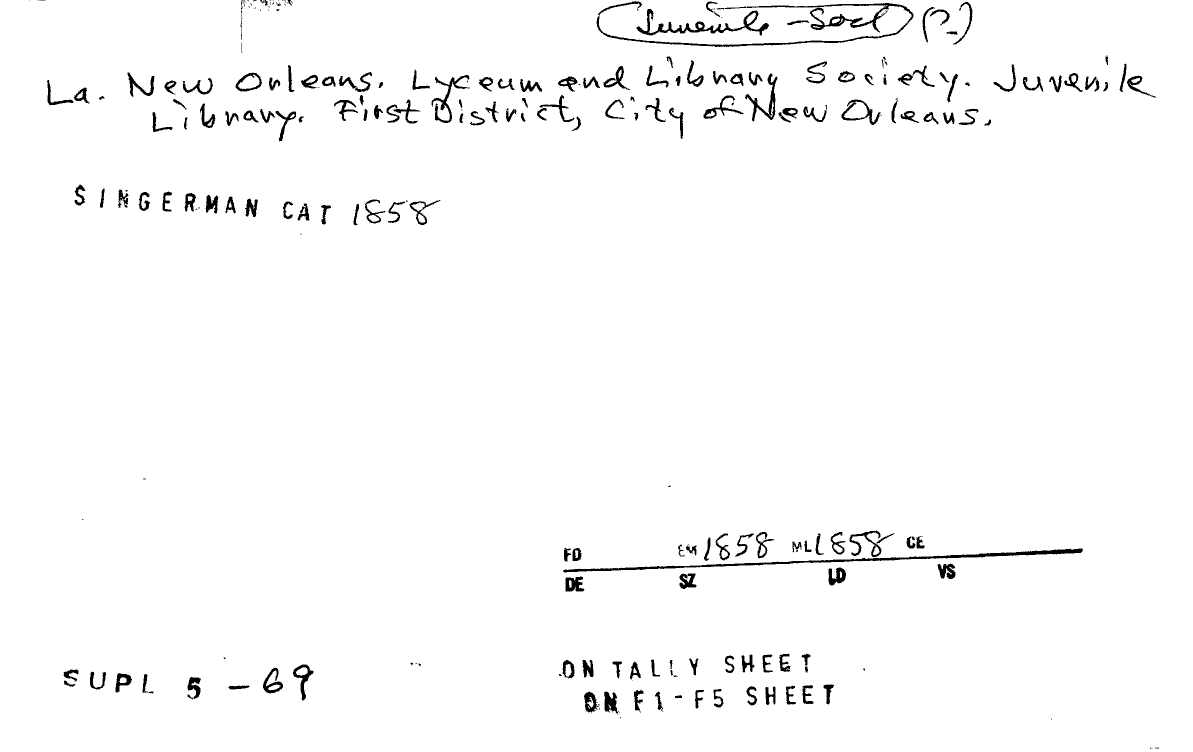 Juvenile - Socl (?)
La. New Orleans. Lyceum and Library Society. Juvenile
Library. First District, City of New Orleans.
SINGERMAN CAT 1858
FD EM 1858 ML 1858 CE
DE SZ LD VS
SUPL 5 - 69
ON TALLY SHEET
ON F1-F5 SHEET